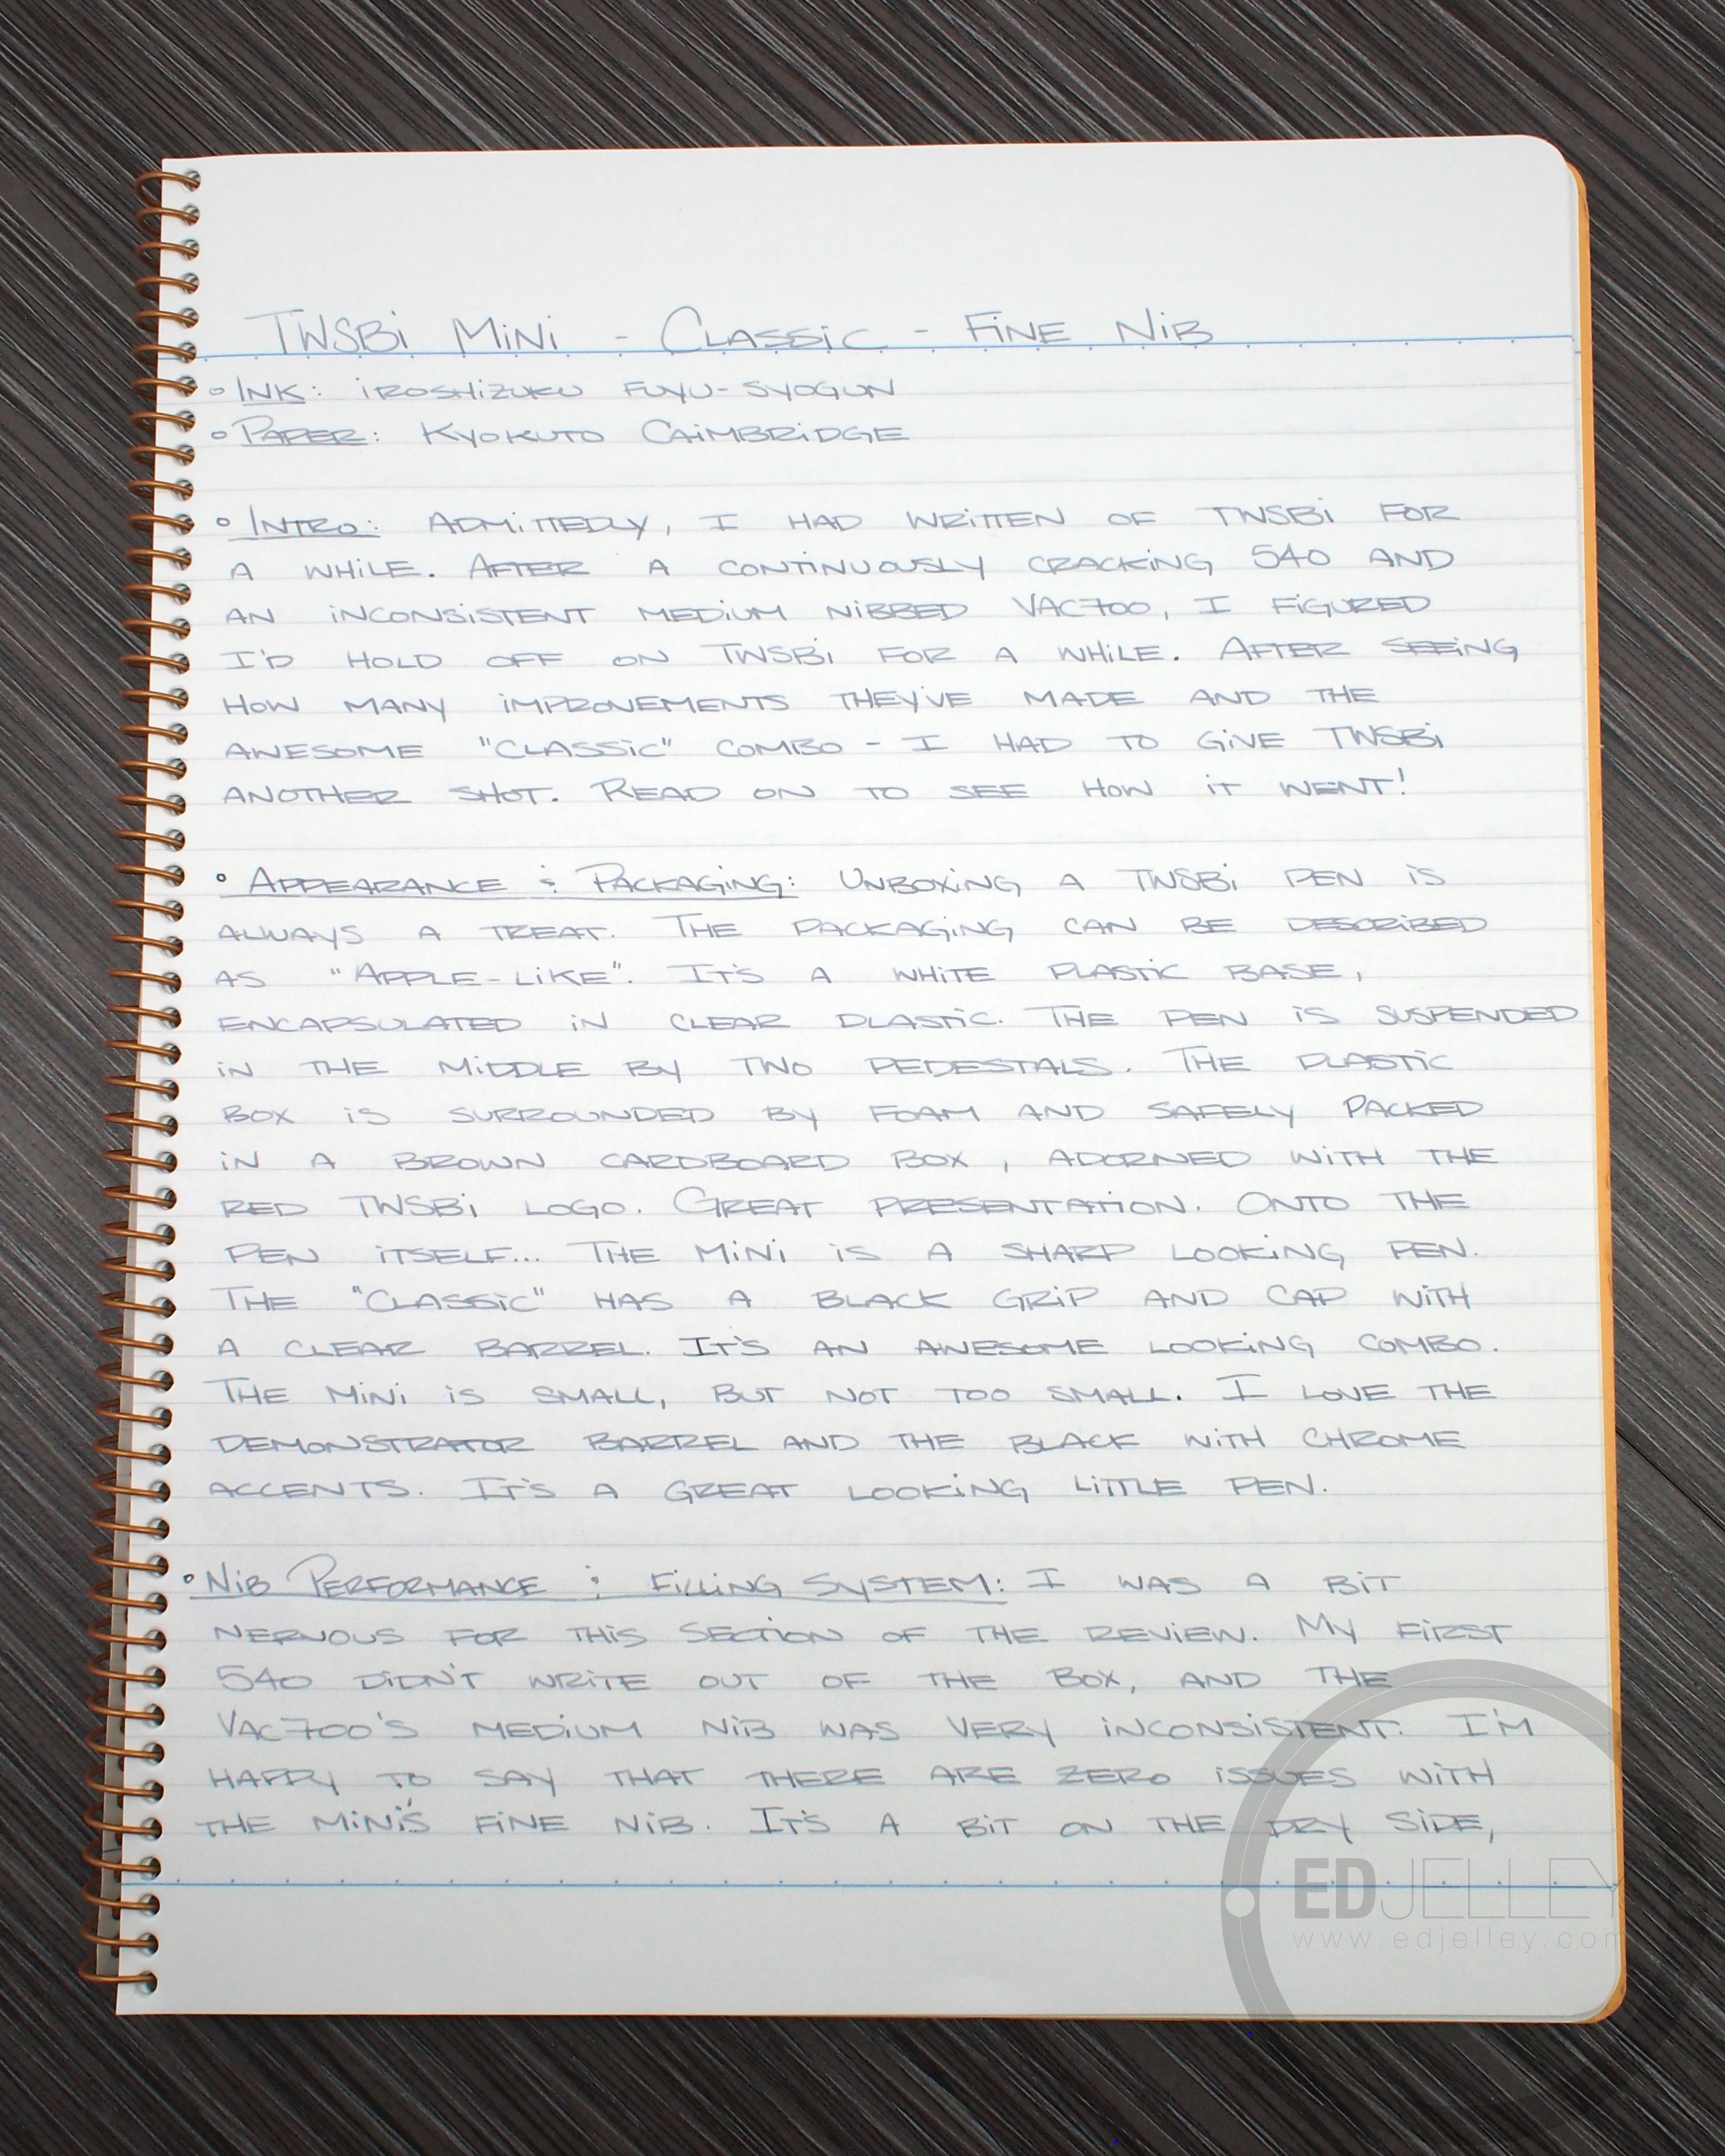 TWSBi MiNi - CLASSiC - FiNE NiB
◦ INK: iROSHiZUKU FUYU-SYOGUN
◦ PAPER: KYOKUTO CAiMBRiDGE
◦ INTRO: ADMiTTEDLY, I HAD WRiTTEN OF TWSBi FOR
A WHiLE. AFTER A CONTiNUOUSLY CRACKiNG 540 AND
AN iNCONSiSTENT MEDiUM NiBBED VAC700, I FiGURED
I'D HOLD OFF ON TWSBi FOR A WHiLE. AFTER SEEiNG
HOW MANY iMPROVEMENTS THEY'VE MADE AND THE
AWESOME "CLASSiC" COMBO - I HAD TO GiVE TWSBi
ANOTHER SHOT. READ ON TO SEE HOW iT WENT!
◦ APPEARANCE & PACKAGiNG: UNBOXiNG A TWSBi PEN iS
ALWAYS A TREAT. THE PACKAGiNG CAN BE DESCRiBED
AS "APPLE-LiKE". IT'S A WHiTE PLASTiC BASE,
ENCAPSULATED iN CLEAR PLASTiC. THE PEN iS SUSPENDED
iN THE MiDDLE BY TWO PEDESTALS. THE PLASTiC
BOX iS SURROUNDED BY FOAM AND SAFELY PACKED
iN A BROWN CARDBOARD BOX, ADORNED WiTH THE
RED TWSBi LOGO. GREAT PRESENTATiON. ONTO THE
PEN iTSELF... THE MiNi iS A SHARP LOOKiNG PEN.
THE "CLASSiC" HAS A BLACK GRiP AND CAP WiTH
A CLEAR BARREL. IT'S AN AWESOME LOOKiNG COMBO.
THE MiNi iS SMALL, BUT NOT TOO SMALL. I LOVE THE
DEMONSTRATOR BARREL AND THE BLACK WiTH CHROME
ACCENTS. IT'S A GREAT LOOKiNG LiTTLE PEN.
◦ NiB PERFORMANCE & FiLLiNG SYSTEM: I WAS A BiT
NERVOUS FOR THiS SECTiON OF THE REViEW. MY FiRST
540 DiDN'T WRiTE OUT OF THE BOX, AND THE
VAC700'S MEDiUM NiB WAS VERY iNCONSiSTENT. I'M
HAPPY TO SAY THAT THERE ARE ZERO iSSUES WiTH
THE MiNi'S FiNE NiB. IT'S A BiT ON THE DRY SiDE,
EDJELLEY
www.edjelley.com